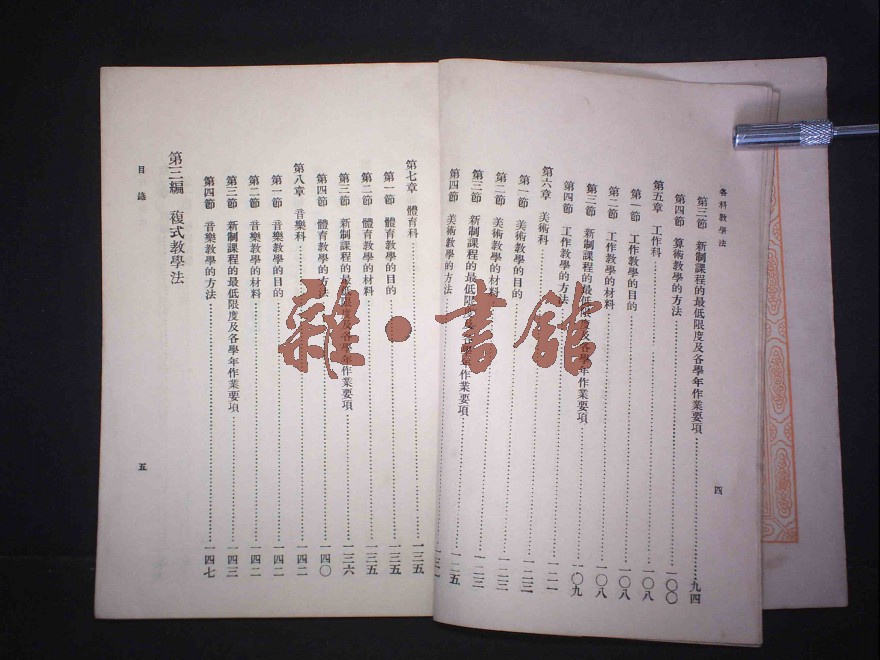 各科教學法
第三節 新制課程的最低限度及各學年作業要項……九四
第四節 算術教學的方法……一〇〇
第五章 工作科……一〇八
第一節 工作教學的目的……一〇八
第二節 工作教學的材料……一〇八
第三節 新制課程的最低限度及各學年作業要項……一〇九
第四節 工作教學的方法
第六章 美術科……一二一
第一節 美術教學的目的……一二三
第二節 美術教學的材料……一二三
第三節 新制課程的最低限度及各學年作業要項……一二三
第四節 美術教學的方法……一二五
四
第七章 體育科……一三五
第一節 體育教學的目的……一三五
第二節 體育教學的材料……一三五
第三節 新制課程的最低限度及各學年作業要項……一三六
第四節 體育教學的方法……一四〇
第八章 音樂科……一四二
第一節 音樂教學的目的……一四二
第二節 音樂教學的材料……一四二
第三節 新制課程的最低限度及各學年作業要項……一四三
第四節 音樂教學的方法……一四七
第三編 複式教學法
目錄
五
雜·書館